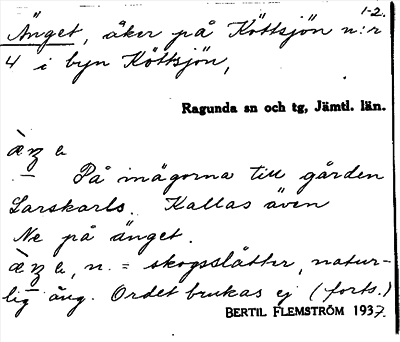 1-2.
Änget, åker på Köttsjön n:r
4 i byn Köttsjön,
Ragunda sn och tg, Jämtl. län.
På inägorna till gården
Larskarls. Kallas även
Ne på änget.
n. = skogsslåtter, natur-
lig äng. Ordet brukas ej (forts.)
BERTIL FLEMSTRÖM 1937.